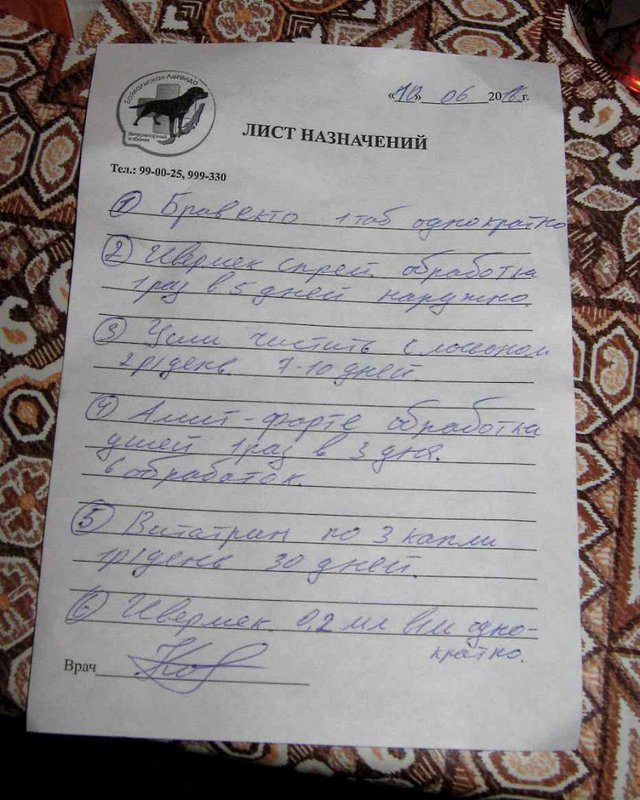 Байкальская Легенда
Ветеринарный кабинет
«10» 06 2018 г.
ЛИСТ НАЗНАЧЕНИЙ
Тел.: 99-00-25, 999-330
1 Бравекто 1 таб однократно
2 Ивермек спрей обработка
1 раз в 5 дней наружно.
3 Уши чистить с лосьоном
2р/день 7-10 дней.
4 Амит-форте обработка
ушей 1 раз в 3 дня.
6 обработок.
5 Витатрин по 3 капли
1р/день 30 дней.
6 Ивермек 0,2 мл в/м одно-
кратно.
Врач